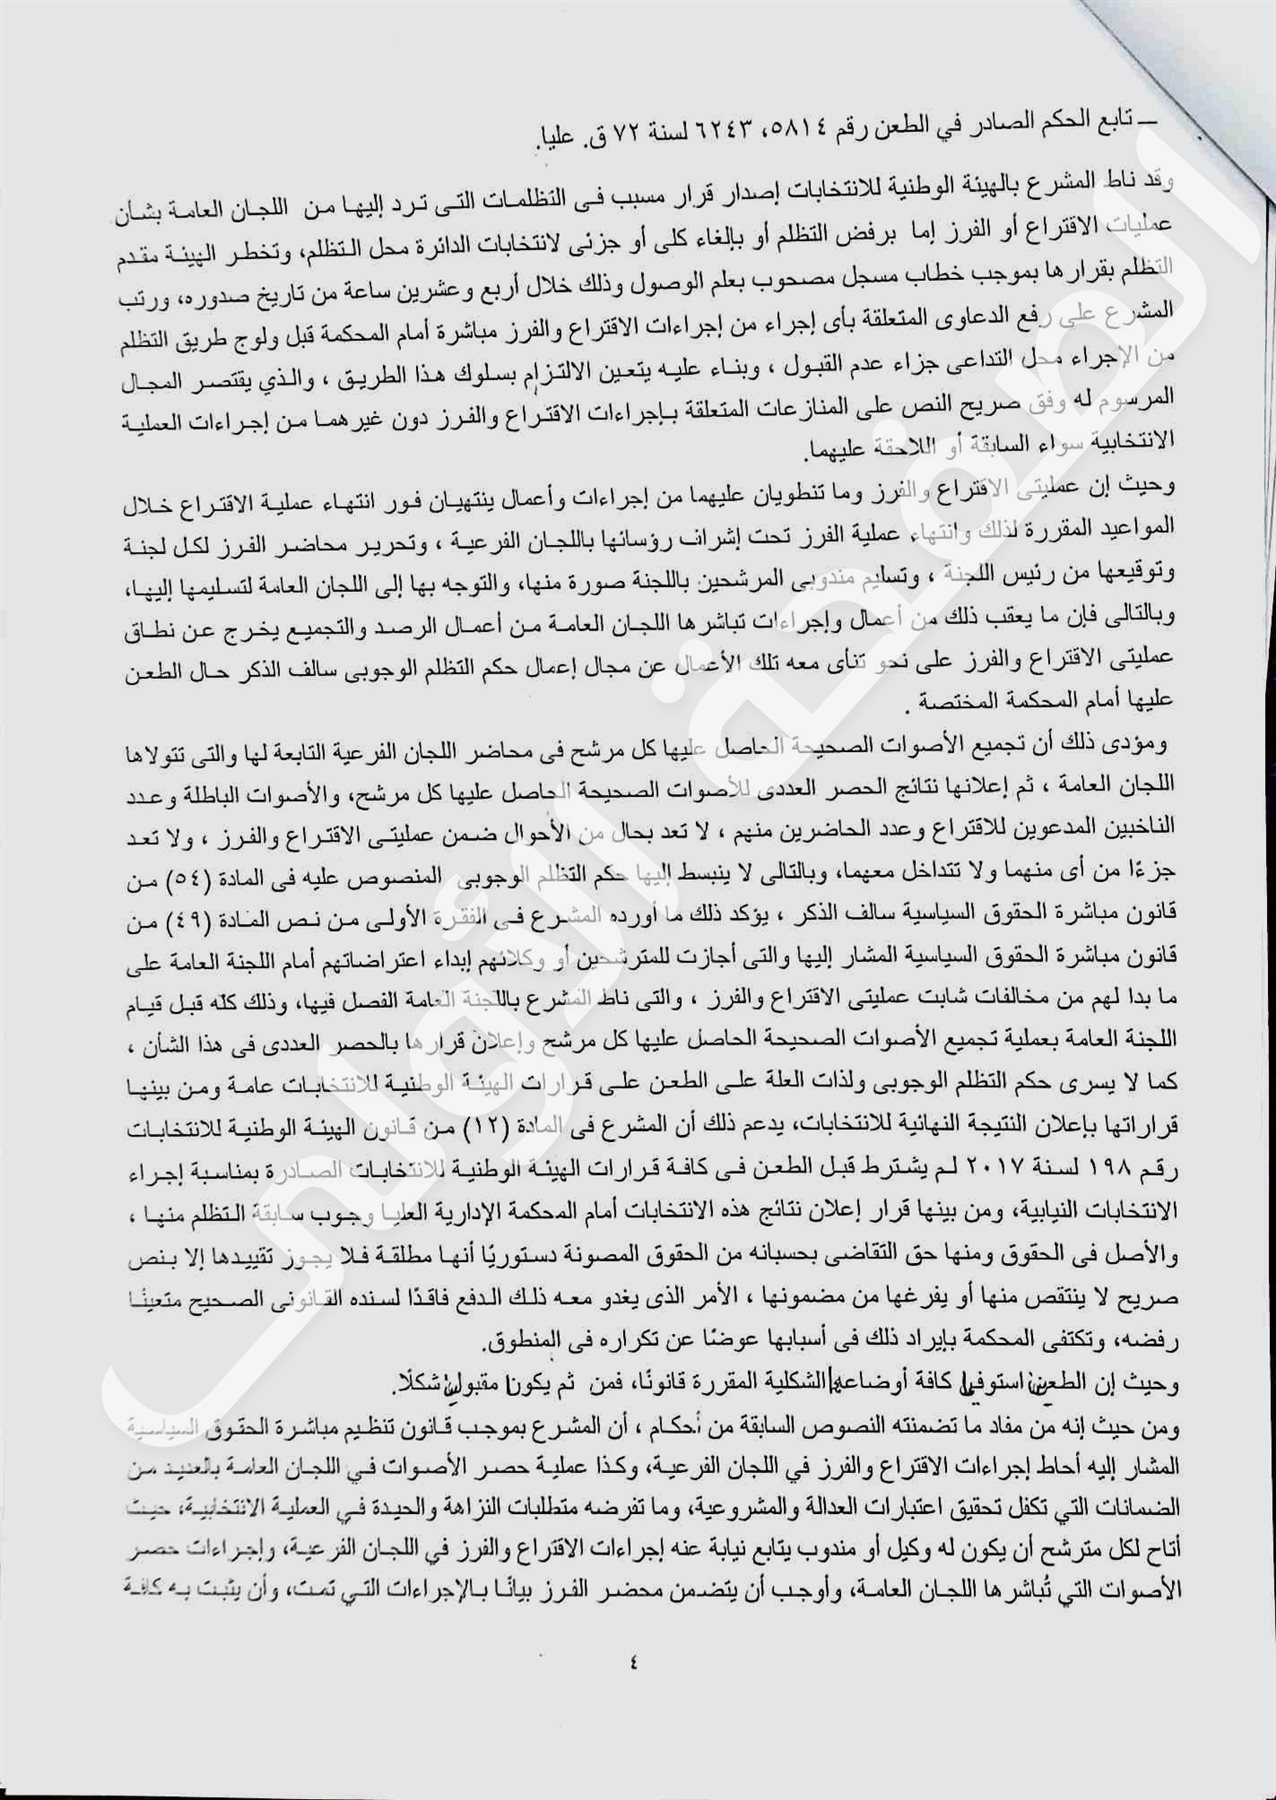 ــ تابع الحكم الصادر في الطعن رقم ٥٨١٤، ٦٢٤٣ لسنة ٧٢ ق. عليا.
وقد ناط المشرع بالهيئة الوطنية للانتخابات إصدار قرار مسبب فى التظلمات التى ترد إليها من اللجان العامة بشأن
عمليات الاقتراع أو الفرز إما برفض التظلم أو بإلغاء كلى أو جزئى لانتخابات الدائرة محل التظلم، وتخطر الهيئة مقدم
التظلم بقرارها بموجب خطاب مسجل مصحوب بعلم الوصول وذلك خلال أربع وعشرين ساعة من تاريخ صدوره، ورتب
المشرع على رفع الدعاوى المتعلقة بأى إجراء من إجراءات الاقتراع والفرز مباشرة أمام المحكمة قبل ولوج طريق التظلم
من الإجراء محل التداعى جزاء عدم القبول ، وبناء عليه يتعين الالتزام بسلوك هذا الطريق ، والذي يقتصر المجال
المرسوم له وفق صريح النص على المنازعات المتعلقة بإجراءات الاقتراع والفرز دون غيرهما من إجراءات العملية
الانتخابية سواء السابقة أو اللاحقة عليهما.
وحيث إن عمليتى الاقتراع والفرز وما تنطويان عليهما من إجراءات وأعمال ينتهيان فور انتهاء عملية الاقتراع خلال
المواعيد المقررة لذلك وانتهاء عملية الفرز تحت إشراف رؤسائها باللجان الفرعية ، وتحرير محاضر الفرز لكل لجنة
وتوقيعها من رئيس اللجنة ، وتسليم مندوبى المرشحين باللجنة صورة منها، والتوجه بها إلى اللجان العامة لتسليمها إليها،
وبالتالى فإن ما يعقب ذلك من أعمال وإجراءات تباشرها اللجان العامة من أعمال الرصد والتجميع يخرج عن نطاق
عمليتى الاقتراع والفرز على نحو تنأى معه تلك الأعمال عن مجال إعمال حكم التظلم الوجوبى سالف الذكر حال الطعن
عليها أمام المحكمة المختصة .
ومؤدى ذلك أن تجميع الأصوات الصحيحة الحاصل عليها كل مرشح فى محاضر اللجان الفرعية التابعة لها والتى تتولاها
اللجان العامة ، ثم إعلانها نتائج الحصر العددى للأصوات الصحيحة الحاصل عليها كل مرشح، والأصوات الباطلة وعدد
الناخبين المدعوين للاقتراع وعدد الحاضرين منهم ، لا تعد بحال من الأحوال ضمن عمليتى الاقتراع والفرز ، ولا تعد
جزءًا من أى منهما ولا تتداخل معهما، وبالتالى لا ينبسط إليها حكم التظلم الوجوبى المنصوص عليه فى المادة (٥٤) من
قانون مباشرة الحقوق السياسية سالف الذكر ، يؤكد ذلك ما أورده المشرع فى الفقرة الأولى من نص المادة (٤٩) من
قانون مباشرة الحقوق السياسية المشار إليها والتى أجازت للمترشحين أو وكلائهم إبداء اعتراضاتهم أمام اللجنة العامة على
ما بدا لهم من مخالفات شابت عمليتى الاقتراع والفرز ، والتى ناط المشرع باللجنة العامة الفصل فيها، وذلك كله قبل قيام
اللجنة العامة بعملية تجميع الأصوات الصحيحة الحاصل عليها كل مرشح وإعلان قرارها بالحصر العددى فى هذا الشأن ،
كما لا يسرى حكم التظلم الوجوبى ولذات العلة على الطعن على قرارات الهيئة الوطنية للانتخابات عامة ومن بينها
قراراتها بإعلان النتيجة النهائية للانتخابات، يدعم ذلك أن المشرع فى المادة (١٢) من قانون الهيئة الوطنية للانتخابات
رقم ١٩٨ لسنة ٢٠١٧ لم يشترط قبل الطعن فى كافة قرارات الهيئة الوطنية للانتخابات الصادرة بمناسبة إجراء
الانتخابات النيابية، ومن بينها قرار إعلان نتائج هذه الانتخابات أمام المحكمة الإدارية العليا وجوب سابقة التظلم منها ،
والأصل فى الحقوق ومنها حق التقاضى بحسبانه من الحقوق المصونة دستوريًا أنها مطلقة فلا يجوز تقييدها إلا بنص
صريح لا ينتقص منها أو يفرغها من مضمونها ، الأمر الذى يغدو معه ذلك الدفع فاقدًا لسنده القانونى الصحيح متعينًا
رفضه، وتكتفى المحكمة بإيراد ذلك فى أسبابها عوضًا عن تكراره فى المنطوق.
وحيث إن الطعن استوفيا كافة أوضاعها الشكلية المقررة قانونًا، فمن ثم يكون مقبول شكلًا.
ومن حيث إنه من مفاد ما تضمنته النصوص السابقة من أحكام ، أن المشرع بموجب قانون تنظيم مباشرة الحقوق السياسية
المشار إليه أحاط إجراءات الاقتراع والفرز في اللجان الفرعية، وكذا عملية حصر الأصوات في اللجان العامة بالعديد من
الضمانات التي تكفل تحقيق اعتبارات العدالة والمشروعية، وما تفرضه متطلبات النزاهة والحيدة في العملية الانتخابية، حيث
أتاح لكل مترشح أن يكون له وكيل أو مندوب يتابع نيابة عنه إجراءات الاقتراع والفرز في اللجان الفرعية، وإجراءات حصر
الأصوات التي تُباشرها اللجان العامة، وأوجب أن يتضمن محضر الفرز بيانًا بالإجراءات التي تمت، وأن يثبت به كافة
٤
الصفحة الأولى